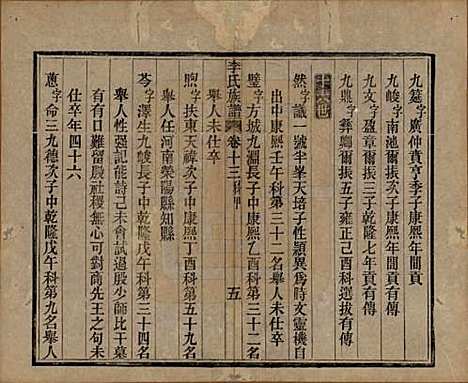 九筵字廣仲蕡亨季子康熙年間貢
九峻字南池爾振次子康熙年間貢
九文字盈章爾振六子乾隆七年貢有傳
九鼎字彝鄉爾振五子雍正己酉科選拔有傳
然字識一號半峯天培子性頴異爲時文靈機自
出中康熙壬午科第三十二名舉人未仕卒
璧字方城九淵長子中康熙乙酉科第三十二名
舉人未仕卒
李氏族譜 卷十三 五
煦字扶東天禕次子中康熙丁酉科第五十九名
舉人任河南滎陽縣知縣
芩字澤生九峻長子中乾隆戊午科第三十四名
舉人性强記能詩已未會試過殷少師比干墓
有有日難留殷社稷無心可對商先王之句未
仕卒年四十六
蕙字侖三九德次子中乾隆戊午科第九名舉人